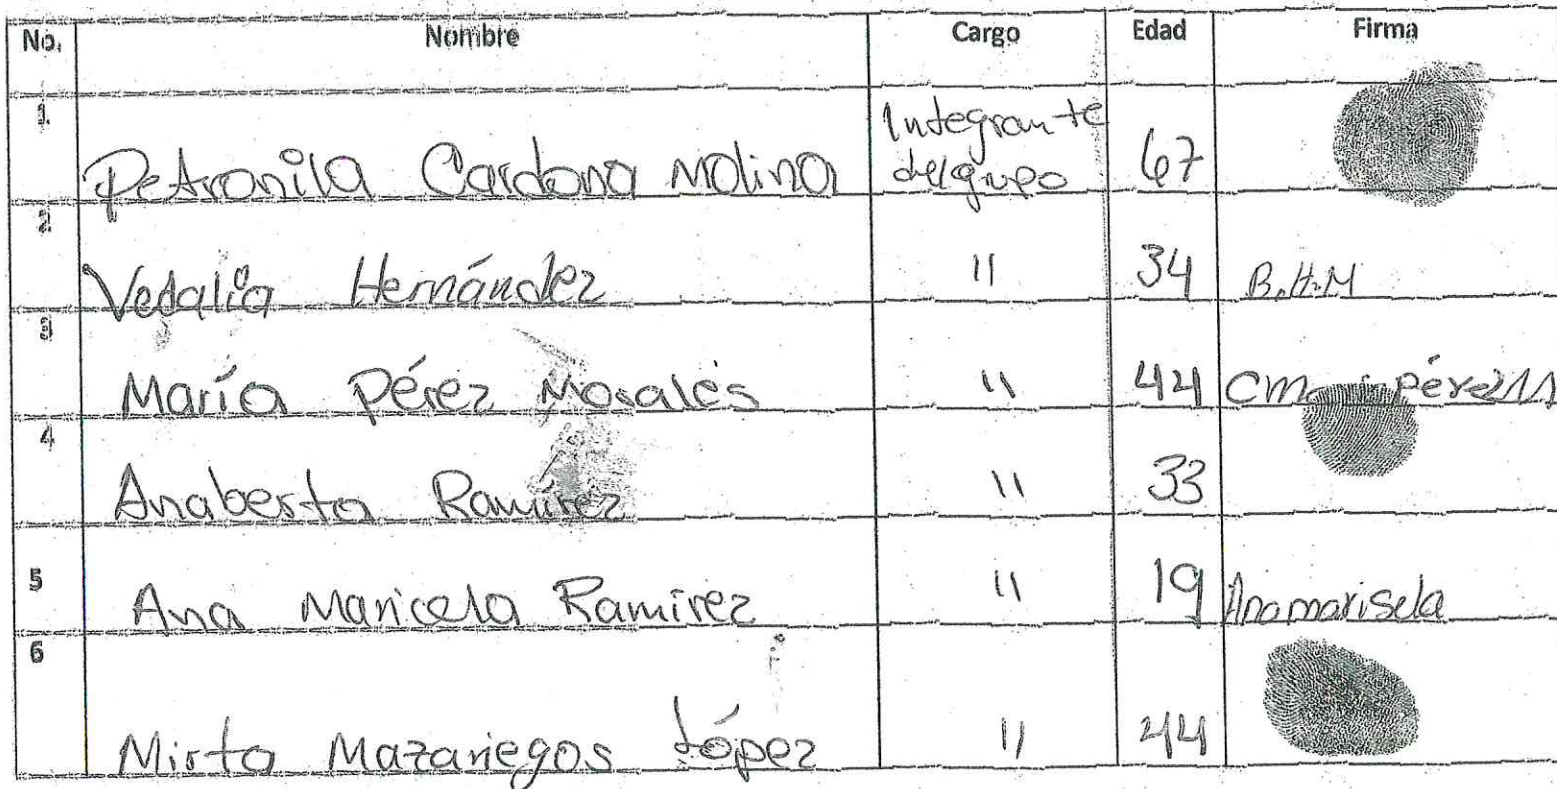 No. Nombre Cargo Edad Firma
1. Petronila Cardona Molina Integrante del grupo 67
2 Vedalia Hernández 11 34 B.H.M
3 María Pérez Morales 11 44 Pérez M
4 Anaberta Ramírez 11 33
5 Ana Maricela Ramírez 11 19 Anamarisela
6 Mirta Mazariegos López 11 44